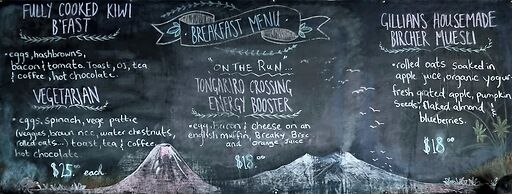 FULLY COOKED KIWI
B'FAST
• eggs, hashbrowns,
bacon & tomato. Toast, OJ, tea
& coffee, hot chocolate.
VEGETARIAN
• eggs, spinach, vege pattie
(veggies, brown rice, water chestnuts,
rolled oats...) toast, tea & coffee
hot chocolate.
$25.00 each
BREAKFAST MENU
"ON THE RUN"
TONGARIRO CROSSING
ENERGY BOOSTER
• egg, bacon & cheese on an
english muffin, Breaky Bixe
and orange Juice
$18.00
GILLIANS HOUSEMADE
BIRCHER MUESLI
• rolled oats soaked in
apple juice, organic yogurt
fresh grated apple, pumpkin
seeds, flaked almond &
blueberries.
$18.00